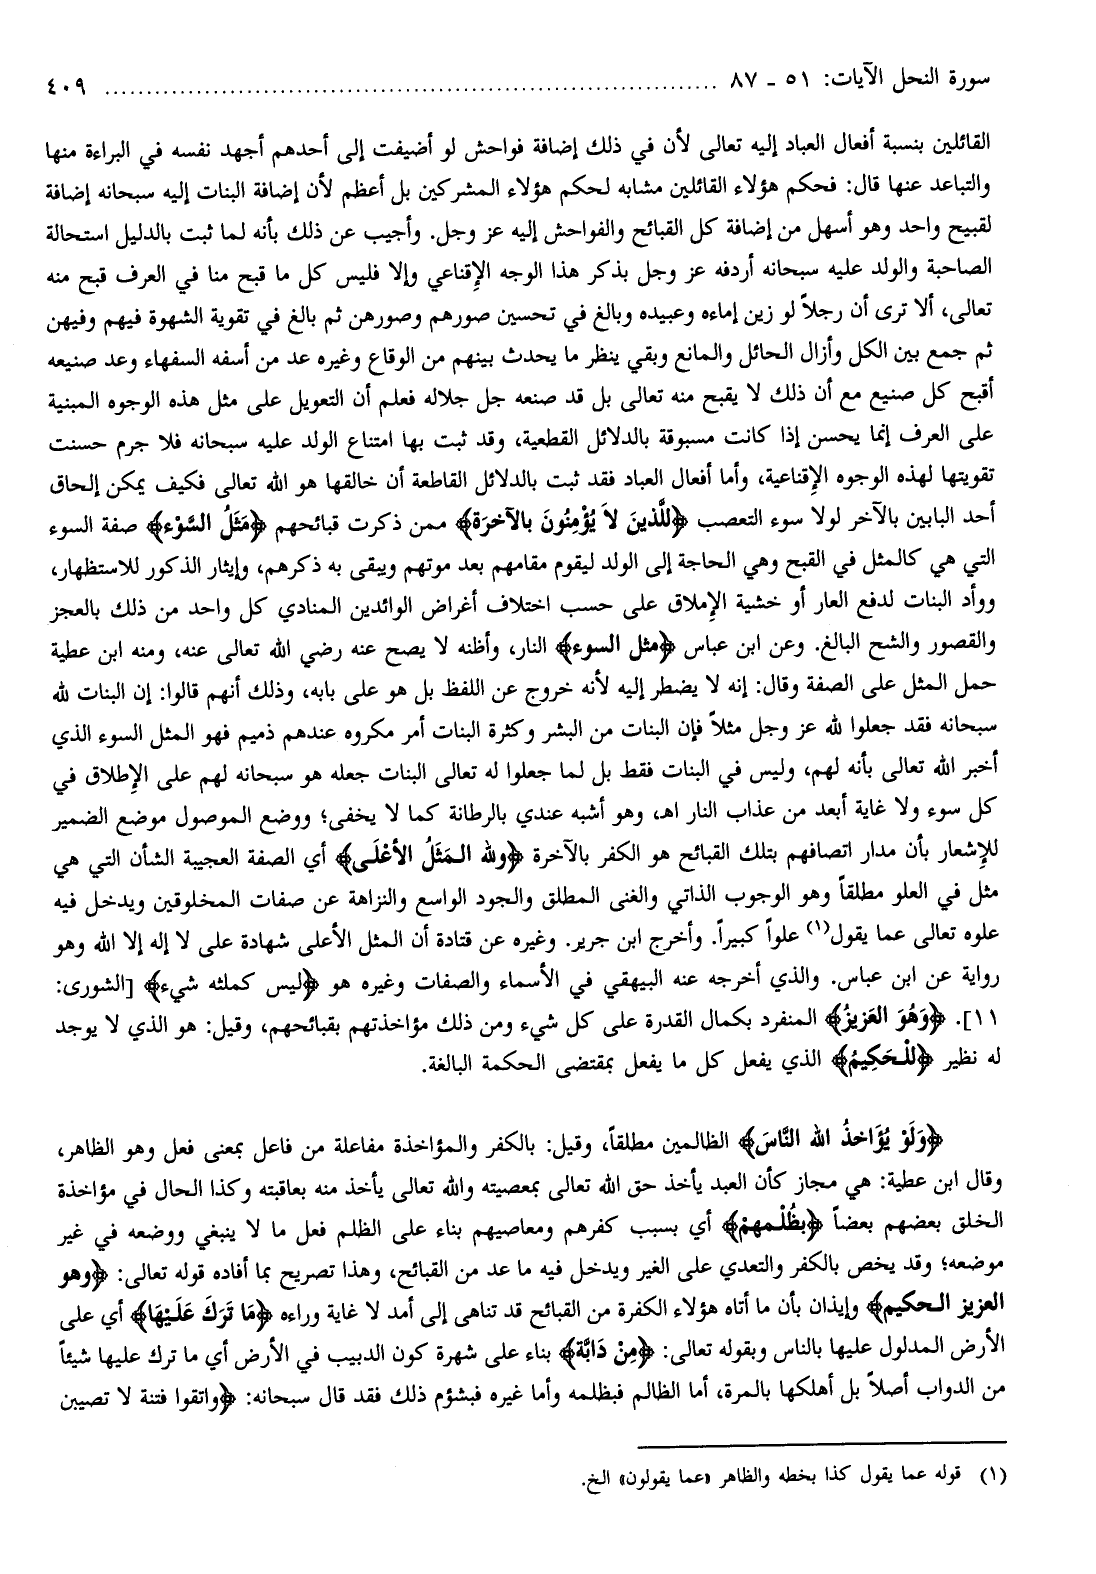 سورة النحل الآيات: ٥١ ـ ٨٧ ........................................................................... ٤٠٩
القائلين بنسبة أفعال العباد إليه تعالى لأن في ذلك إضافة فواحش لو أضيفت إلى أحدهم أجهد نفسه في البراءة منها
والتباعد عنها قال: فحكم هؤلاء القائلين مشابه لحكم هؤلاء المشركين بل أعظم لأن إضافة البنات إليه سبحانه إضافة
لقبيح واحد وهو أسهل من إضافة كل القبائح والفواحش إليه عز وجل. وأجيب عن ذلك بأنه لما ثبت بالدليل استحالة
الصاحبة والولد عليه سبحانه أردفه عز وجل بذكر هذا الوجه الإِقناعي وإلا فليس كل ما قبح منا في العرف قبح منه
تعالى، ألا ترى أن رجلاً لو زين إماءه وعبيده وبالغ في تحسين صورهم وصورهن ثم بالغ في تقوية الشهوة فيهم وفيهن
ثم جمع بين الكل وأزال الحائل والمانع وبقي ينظر ما يحدث بينهم من الوقاع وغيره عد من أسفه السفهاء وعد صنيعه
أقبح كل صنيع مع أن ذلك لا يقبح منه تعالى بل قد صنعه جل جلاله فعلم أن التعويل على مثل هذه الوجوه المبنية
على العرف إنما يحسن إذا كانت مسبوقة بالدلائل القطعية، وقد ثبت بها امتناع الولد عليه سبحانه فلا جرم حسنت
تقويتها لهذه الوجوه الإِقناعية، وأما أفعال العباد فقد ثبت بالدلائل القاطعة أن خالقها هو الله تعالى فكيف يمكن إلحاق
أحد البابين بالآخر لولا سوء التعصب ﴿للَّذينَ لاَ يُؤْمِنُونَ بالآخرَة﴾ ممن ذكرت قبائحهم ﴿مَثَلُ السَّوْء﴾ صفة السوء
التي هي كالمثل في القبح وهي الحاجة إلى الولد ليقوم مقامهم بعد موتهم ويبقى به ذكرهم، وإيثار الذكور للاستظهار،
ووأد البنات لدفع العار أو خشية الإِملاق على حسب اختلاف أغراض الوائدين المنادي كل واحد من ذلك بالعجز
والقصور والشح البالغ. وعن ابن عباس ﴿مثل السوء﴾ النار، وأظنه لا يصح عنه رضي الله تعالى عنه، ومنه ابن عطية
حمل المثل على الصفة وقال: إنه لا يضطر إليه لأنه خروج عن اللفظ بل هو على بابه، وذلك أنهم قالوا: إن البنات لله
سبحانه فقد جعلوا لله عز وجل مثلاً فإن البنات من البشر وكثرة البنات أمر مكروه عندهم ذميم فهو المثل السوء الذي
أخبر الله تعالى بأنه لهم، وليس في البنات فقط بل لما جعلوا له تعالى البنات جعله هو سبحانه لهم على الإِطلاق في
كل سوء ولا غاية أبعد من عذاب النار اهـ، وهو أشبه عندي بالرطانة كما لا يخفى؛ ووضع الموصول موضع الضمير
للإِشعار بأن مدار اتصافهم بتلك القبائح هو الكفر بالآخرة ﴿ولله المَثَلُ الأعْلَى﴾ أي الصفة العجيبة الشأن التي هي
مثل في العلو مطلقاً وهو الوجوب الذاتي والغنى المطلق والجود الواسع والنزاهة عن صفات المخلوقين ويدخل فيه
علوه تعالى عما يقول(١) علواً كبيراً. وأخرج ابن جرير. وغيره عن قتادة أن المثل الأعلى شهادة على لا إله إلا الله وهو
رواية عن ابن عباس. والذي أخرجه عنه البيهقي في الأسماء والصفات وغيره هو ﴿ليس كملثه شيء﴾ [الشورى:
١١]. ﴿وَهُوَ العَزيزُ﴾ المنفرد بكمال القدرة على كل شيء ومن ذلك مؤاخذتهم بقبائحهم، وقيل: هو الذي لا يوجد
له نظير ﴿للْحَكِيمُ﴾ الذي يفعل كل ما يفعل بمقتضى الحكمة البالغة.
﴿وَلَوْ يُؤَاخذُ الله النَّاسَ﴾ الظالمين مطلقاً، وقيل: بالكفر والمؤاخذة مفاعلة من فاعل بمعنى فعل وهو الظاهر،
وقال ابن عطية: هي مجاز كأن العبد يأخذ حق الله تعالى بمعصيته والله تعالى يأخذ منه بعاقبته وكذا الحال في مؤاخذة
الخلق بعضهم بعضاً ﴿بظُلْمهمْ﴾ أي بسبب كفرهم ومعاصيهم بناء على الظلم فعل ما لا ينبغي ووضعه في غير
موضعه؛ وقد يخص بالكفر والتعدي على الغير ويدخل فيه ما عد من القبائح، وهذا تصريح بما أفاده قوله تعالى: ﴿وهو
العزيز الحكيم﴾ وإيذان بأن ما أتاه هؤلاء الكفرة من القبائح قد تناهى إلى أمد لا غاية وراءه ﴿مَا تَرَكَ عَلَيْهَا﴾ أي على
الأرض المدلول عليها بالناس وبقوله تعالى: ﴿مِنْ دَابَّة﴾ بناء على شهرة كون الدبيب في الأرض أي ما ترك عليها شيئاً
من الدواب أصلاً بل أهلكها بالمرة، أما الظالم فبظلمه وأما غيره فبشؤم ذلك فقد قال سبحانه: ﴿واتقوا فتنة لا تصيبن
(١) قوله عما يقول كذا بخطه والظاهر «عما يقولون» الخ.